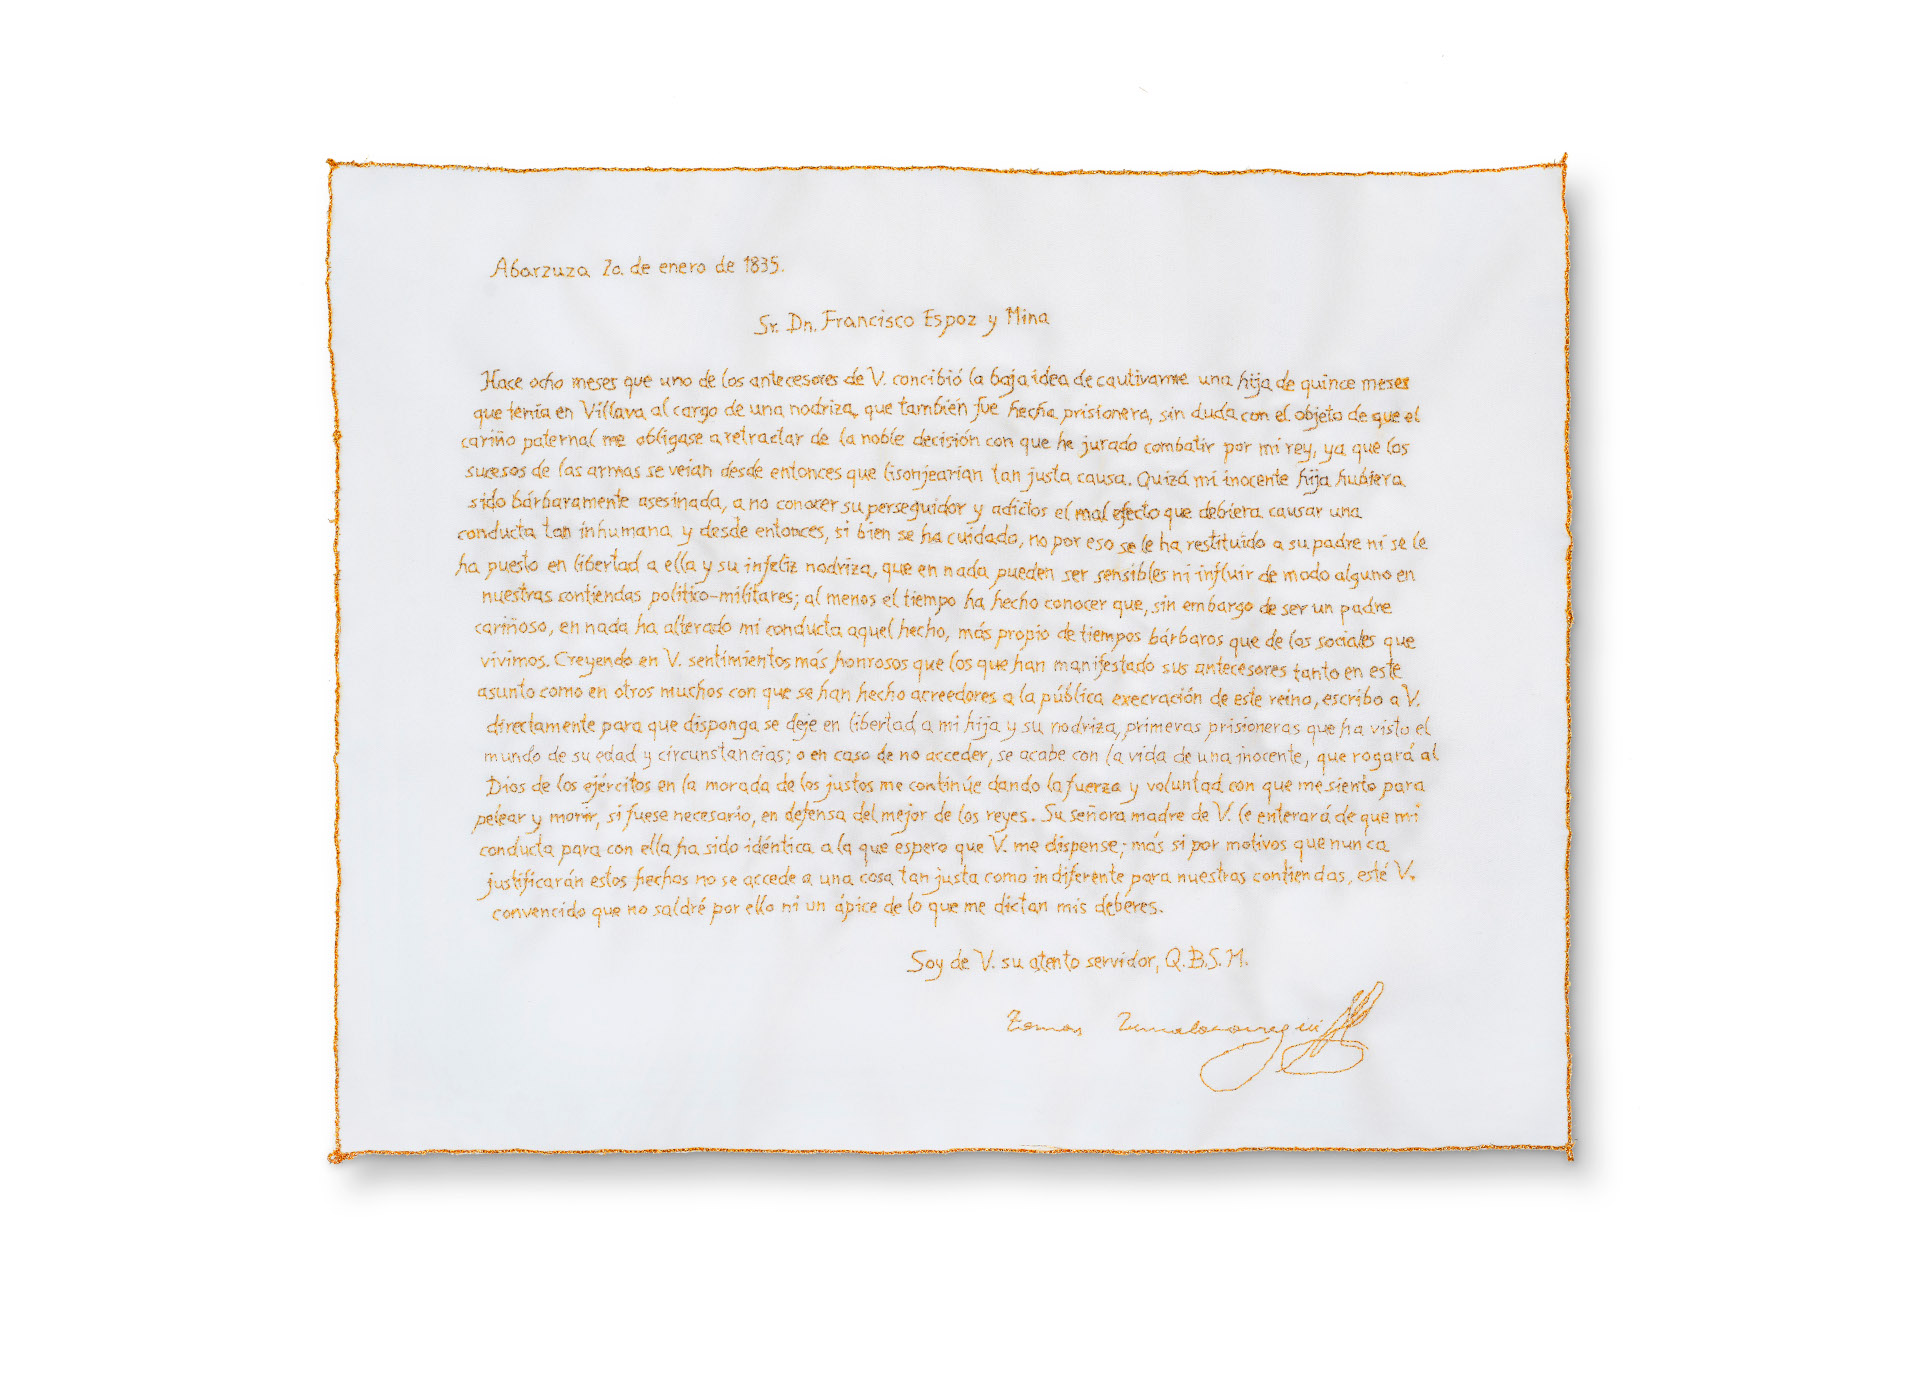 Abarzuza 20. de enero de 1835.
Sr. Dn. Francisco Espoz y Mina
Hace ocho meses que uno de los antecesores de V. concibió la baja idea de cautivarme una hija de quince meses
que tenía en Villava al cargo de una nodriza, que también fue hecha prisionera, sin duda con el objeto de que el
cariño paternal me obligase a retractar de la noble decisión con que he jurado combatir por mi rey, ya que los
sucesos de las armas se veían desde entonces que lisonjearían tan justa causa. Quizá mi inocente hija hubiera
sido bárbaramente asesinada, a no conocer su perseguidor y adictos el mal efecto que debiera causar una
conducta tan inhumana y desde entonces, si bien se ha cuidado, no por eso se le ha restituido a su padre ni se le
ha puesto en libertad a ella y su infeliz nodriza, que en nada pueden ser sensibles ni influir de modo alguno en
nuestras contiendas político-militares; al menos el tiempo ha hecho conocer que, sin embargo de ser un padre
cariñoso, en nada ha alterado mi conducta aquel hecho, más propio de tiempos bárbaros que de los sociales que
vivimos. Creyendo en V. sentimientos más honrosos que los que han manifestado sus antecesores tanto en este
asunto como en otros muchos con que se han hecho acreedores a la pública execración de este reino, escribo a V.
directamente para que disponga se deje en libertad a mi hija y su nodriza, primeras prisioneras que ha visto el
mundo de su edad y circunstancias; o en caso de no acceder, se acabe con la vida de una inocente, que rogará al
Dios de los ejércitos en la morada de los justos me continúe dando la fuerza y voluntad con que me siento para
pelear y morir, si fuese necesario, en defensa del mejor de los reyes. Su señora madre de V. le enterará de que mi
conducta para con ella ha sido idéntica a la que espero que V. me dispense; más si por motivos que nunca
justificarán estos hechos no se accede a una cosa tan justa como indiferente para nuestras contiendas, esté V.
convencido que no saldré por ello ni un ápice de lo que me dictan mis deberes.
Soy de V. su atento servidor, Q.B.S.M.
Tomas Zumalacarregui